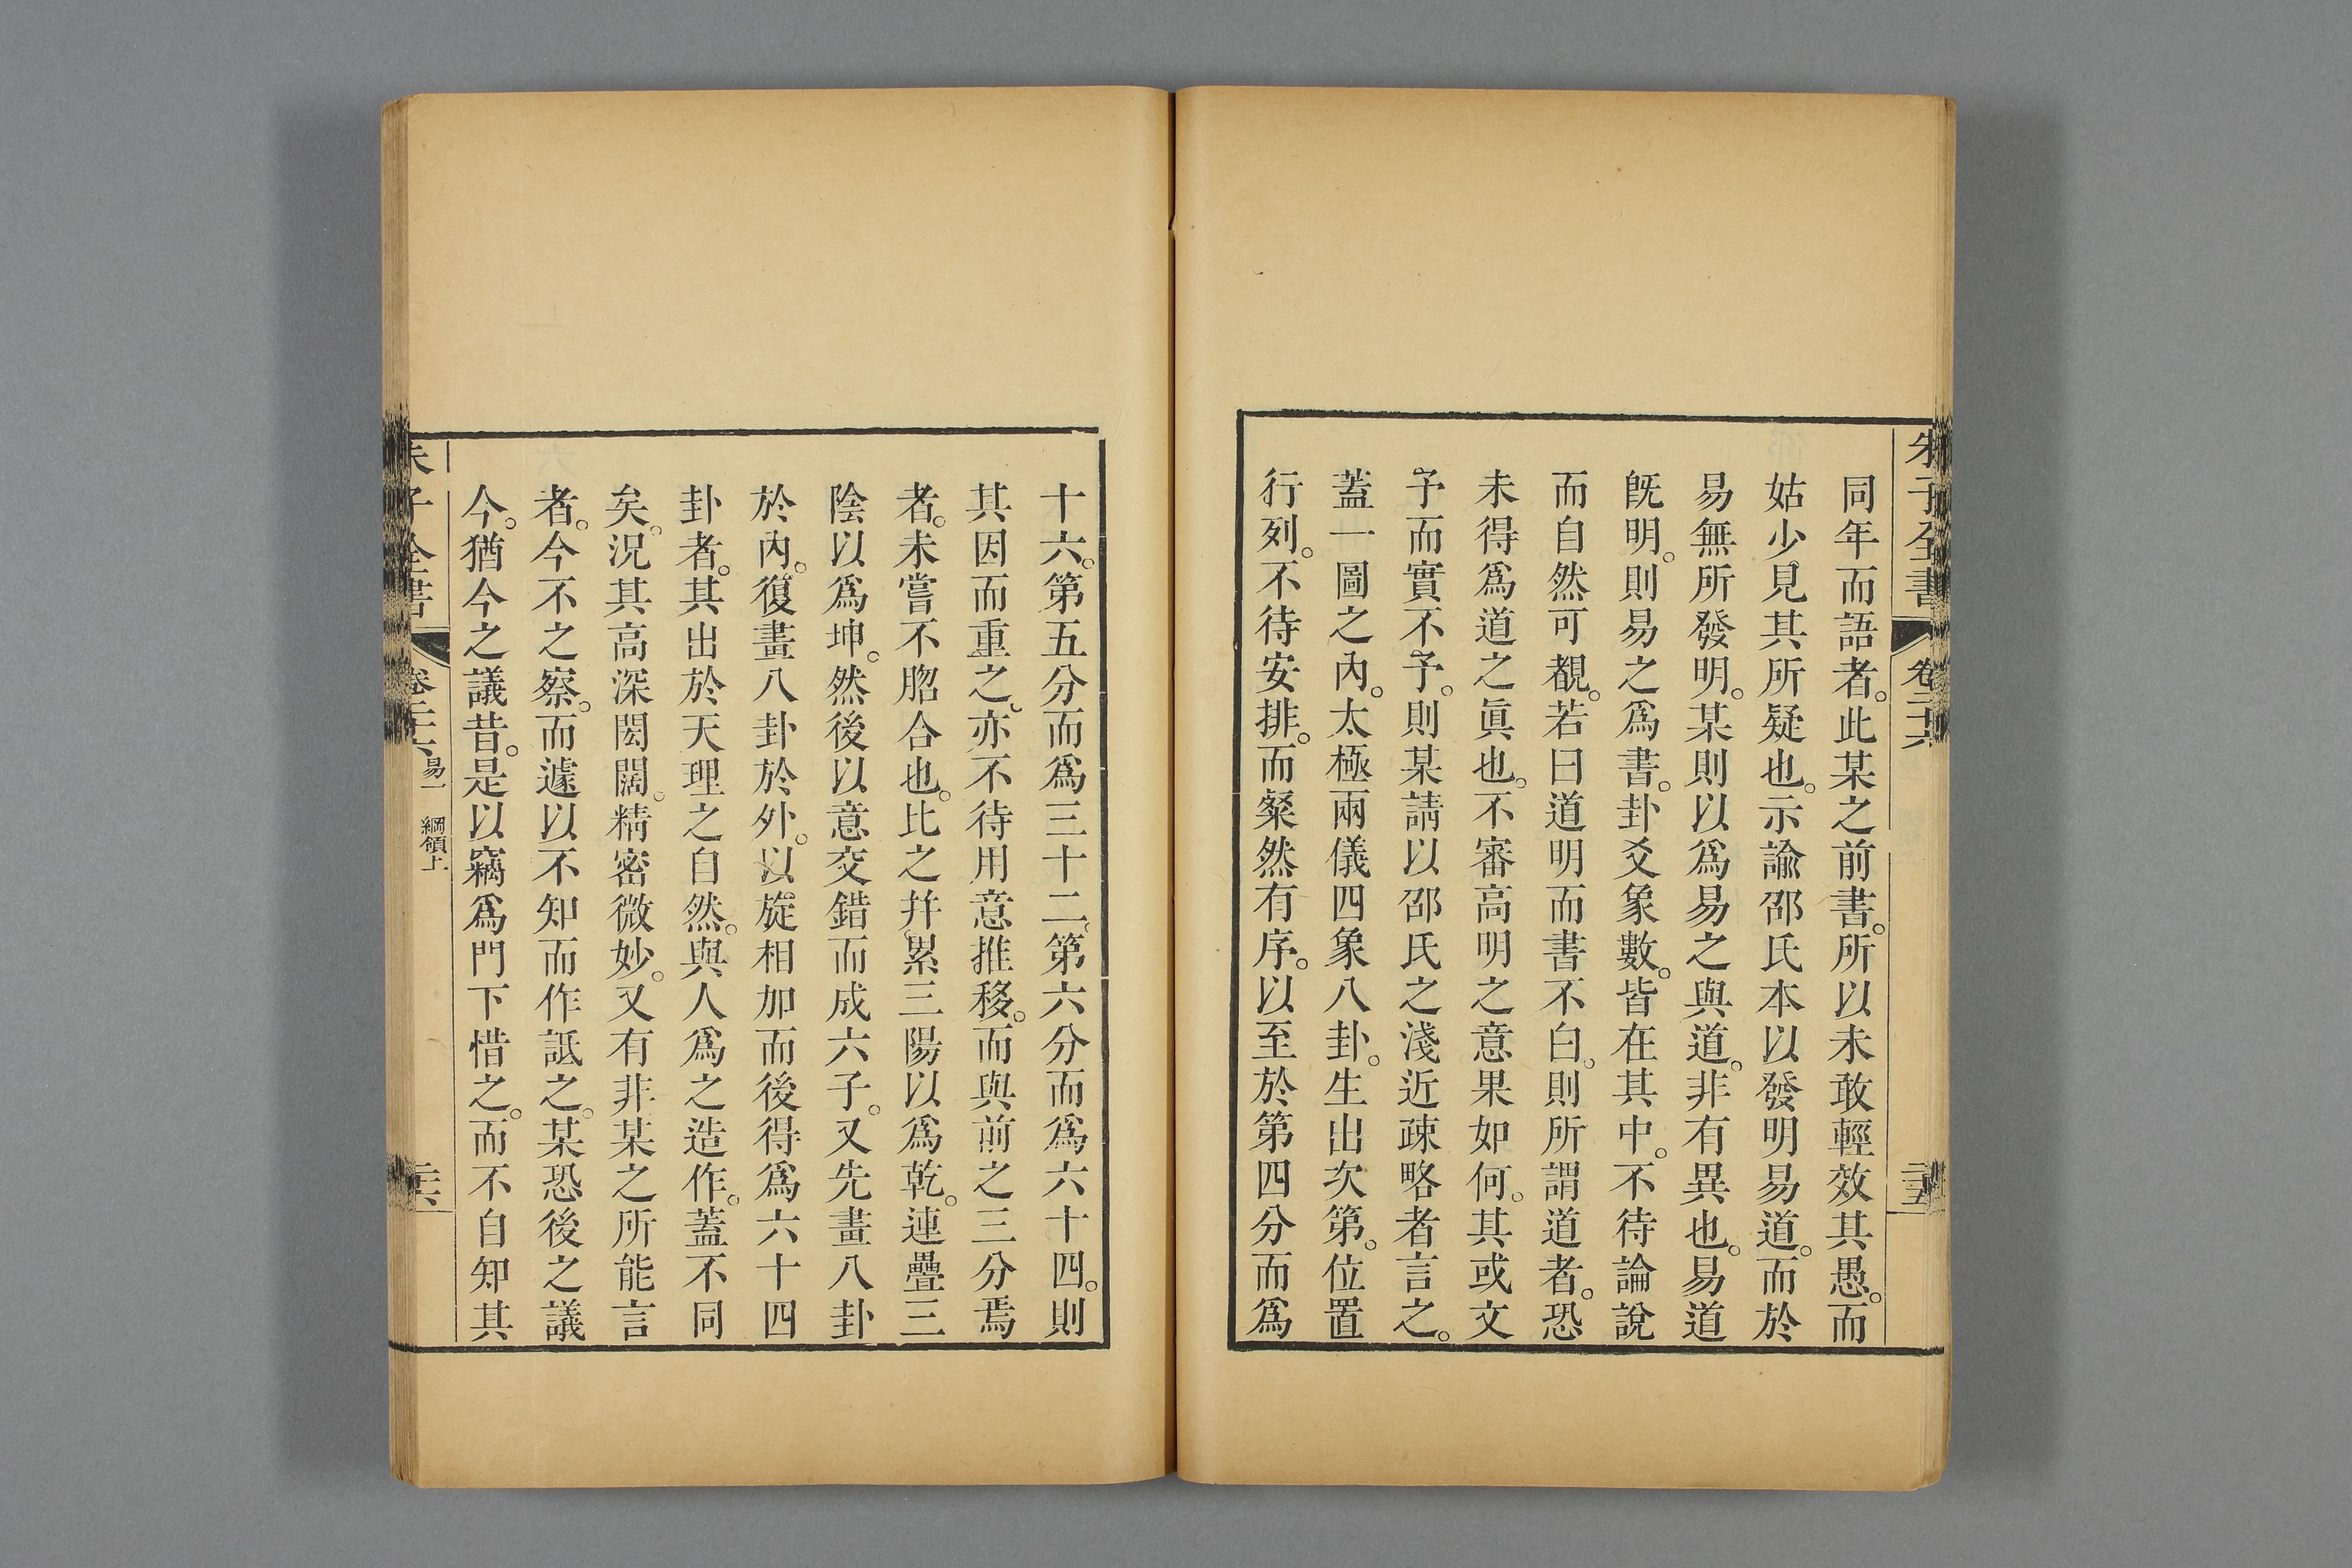 朱子全書 卷二十六 二十五
同年而語者。此某之前書。所以未敢輕效其愚。而
姑少見其所疑也。示諭邵氏本以發明易道。而於
易無所發明。某則以爲易之與道。非有異也。易道
旣明。則易之爲書。卦爻象數。皆在其中。不待論說
而自然可覩。若曰道明而書不白。則所謂道者。恐
未得爲道之眞也。不審高明之意果如何。其或文
予而實不予。則某請以邵氏之淺近疎略者言之。
蓋一圖之內。太極兩儀四象八卦。生出次第。位置
行列。不待安排。而粲然有序。以至於第四分而爲
十六。第五分而爲三十二。第六分而爲六十四。則
其因而重之。亦不待用意推移。而與前之三分焉
者。未嘗不脗合也。比之幷累三陽以爲乾。連疊三
陰以爲坤。然後以意交錯而成六子。又先畫八卦
於內。復畫八卦於外。以旋相加而後得爲六十四
卦者。其出於天理之自然。與人爲之造作。蓋不同
矣。況其高深閎闊。精密微妙。又有非某之所能言
者。今不之察。而遽以不知而作詆之。某恐後之議
今。猶今之議昔。是以竊爲門下惜之。而不自知其
朱子全書 卷二十六 易一 綱領上 二十六